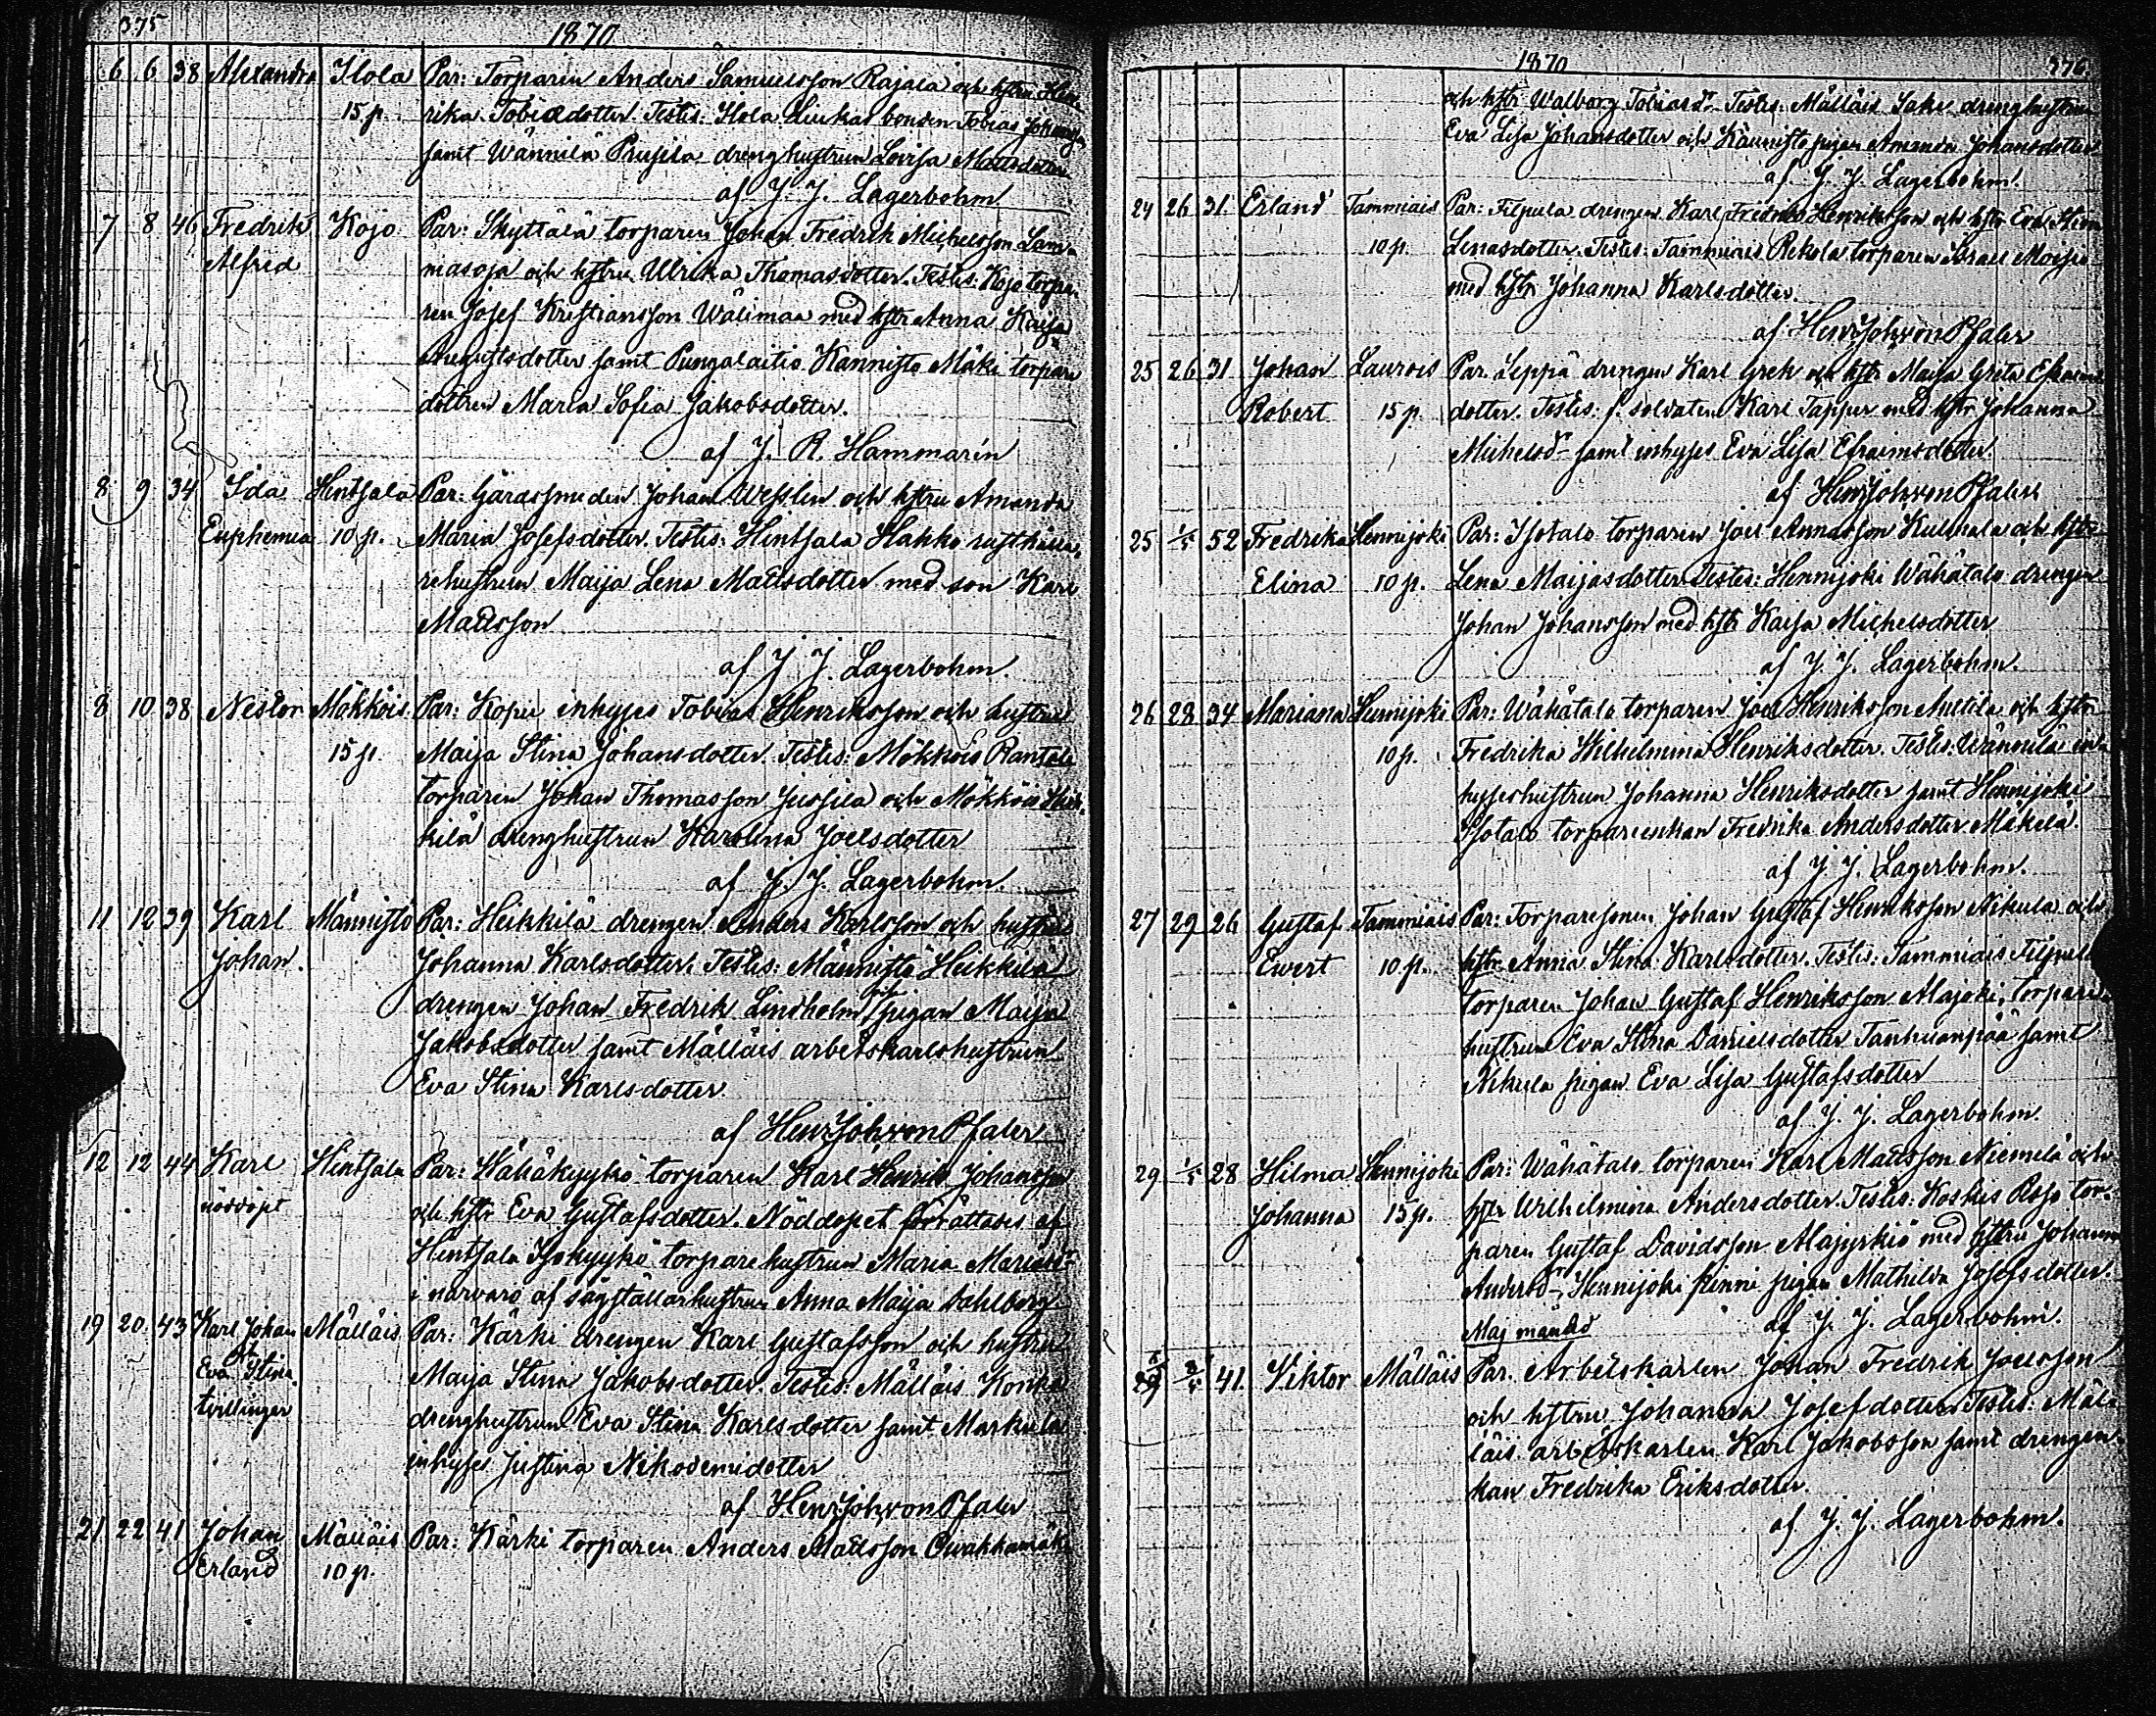 375
1870
6 6 38 Alexandra Ilola Par: Torparen Anders Samuelsson Rajala och hstru Hen-
15 p. rika Tobiædotter. Testes: Ilola Luukas bonden Tobias
samt Wännilä Prusila drenghustrun Lovisa Mattsdotter
af J. J. Lagerbohm.
7 8 46 Fredrik Kojo Par: Skyttälä torparen Johan Fredrik Michelsson Lam-
Alfred masoja och hstru Ulrika Thomasdotter. Testes: Kojo torpa-
ren Josef Kristiansson Wälimaa med hstr Anna Kaisa
Augustsdotter samt Pungalaitio Kannisto Mäki torpare
dottren Maria Sofia Jakobsdotter.
af J. R. Hammarén
8 9 34 Ida Hintsala Par: Gårdssmeden Johan Wesslin och hstru Amanda
Euphemia 10 p. Maria Josefsdotter. Testes: Hintsala Hakko rusthålla-
rehustrun Maija Lena Mattsdotter med son Karl
Mattsson
af J. J. Lagerbohm.
8 10 38 Nestor Mökköis Par: Kopu inhyses Tobias Henriksson och hustru
15 p. Maija Stina Johansdotter. Testes: Mökköis Rantala
torparen Johan Thomasson Jussila och Mökköis Heik-
kilä drenghustrun Karolina Joelsdotter
af J. J. Lagerbohm.
11 12 39 Karl Männistö Par: Heikkilä drengen Anders Karlsson och hustru
Johan. Johanna Karlsdotter. Testes: Männistö Heikkilä
drengen Johan Fredrik Lindholm och pigan Maija
Jakobsdotter samt Mälläis arbetskarlshustrun
Eva Stina Karlsdotter.
af Henr Joh von Pfaler
12 12 44 Karl Hintsala Par: Wähäkyykö torparen Karl Henrik Johansson
nöddöpt och hstr Eva Gustafsdotter. Nöddopet förrättades af
Hintsala Isokyykö torparehustrun Maria Mariasdr
i närvaro af sågställarhustrun Anna Maija Dahlborg.
19 20 43 Karl Johan Mälläis Par: Kärki drengen Karl Gustafsson och hustru
och Eva Stina Maija Stina Jakobsdotter. Testes: Mälläis Konka
tvillingar drenghustrun Eva Stina Karlsdotter samt Markula
inhyses Justina Nikodemidotter
af Henr Joh von Pfaler
21 22 41 Johan Mälläis Par: Kärki torparen Anders Mattsson
Erland 10 p.
1870
376
och hstr Walborg Tobiasdr. Testes: Mälläis drenghustrun
Eva Lisa Johansdotter och Kaunisto pigan Amanda Johansdotter
af J. J. Lagerbohm.
24 26 31 Erland Tammiais Par: Filpula drengen Karl Fredrik Henriksson och hstr Eva Stina
10 p. Lenasdotter. Testes: Tammiais Rekola torparen Israel Moisio
med hstr Johanna Karlsdotter.
af Henr Joh von Pfaler
25 26 31 Johan Laurois Par. Leppä drengen Karl Grek och hstr Maija Greta Efraims
Robert 15 p. dotter. Testes: f. soldaten Karl Tappur med hstr Johanna
Michelsdr samt inhyses Eva Lisa Efraimsdotter.
af Henr Joh von Pfaler
25 1/5 52 Fredrika Hennijoki Par: Isotalo torparen Joel Annasson Kulmala och hstr
Elina 10 p. Lena Maijasdotter. Testes: Hennijoki Wähätalo drengen
Johan Johansson med hstr Kaisa Michelsdotter
af J. J. Lagerbohm.
26 28 34 Mariana Hennijoki Par: Wähätalo torparen Joel Henriksson Anttila och hstr
10 p. Fredrika Wilhelmina Henriksdotter. Testes: Wännilä in-
hyseshustrun Johanna Henriksdotter samt Hennijoki
Isotalo torpareenkan Fredrika Andersdotter Mäkelä.
af J. J. Lagerbohm.
27 29 26 Gustaf Tammiais Par: Torparesonen Johan Gustaf Henriksson Nikula och
Ewert 10 p. hstr Anna Stina Karlsdotter. Testes: Tammiais Filpula
torparen Johan Gustaf Henriksson Majoki, torpare-
hustrun Eva Stina Danielsdotter Tanhuanpää samt
Nikula pigan Eva Lisa Gustafsdotter
af J. J. Lagerbohm.
29 1/5 28 Hilma Hennijoki Par: Wähätalo torparen Karl Mattsson Niemelä och
Johanna 15 p. hstr Wilhelmina Andersdotter. Testes: Koskis Rojo tor-
paren Gustaf Davidsson Alajyrkiö med hstru Johanna
Andersdr, Hennijoki Pinni pigan Mathilda Josefsdotter.
Maj månad af J. J. Lagerbohm.
41. Viktor Mälläis Par. Arbetskarlen Johan Fredrik Joelsson
och hstru Johanna Josefdotter. Testes: Mäl-
läis arbetskarlen Karl Jakobsson samt drengen-
kan Fredrika Eriksdotter.
af J. J. Lagerbohm.